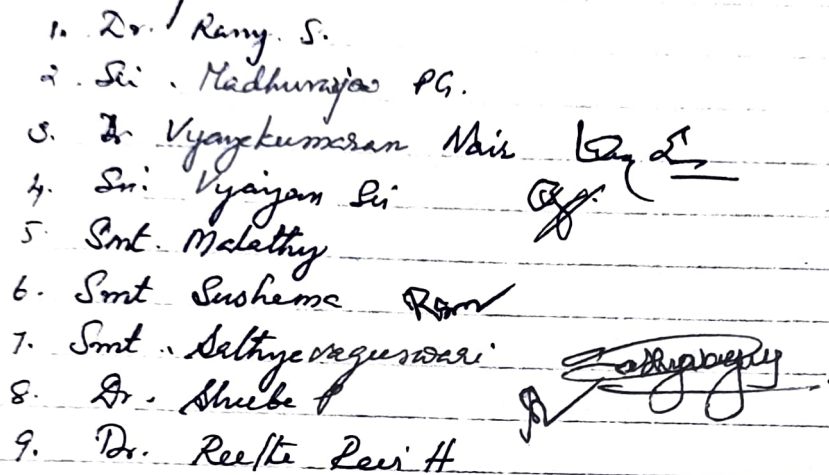 1. Dr. Rany. S.
2. Sri. Madhurajan PG.
3. Dr Vijayekumaran Nair
4. Sri. Vijayan Sir
5 Smt. Malathy
6. Smt Sushema
7. Smt. Sathyevageeswari
8. Dr. Sheebe P
9. Dr. H